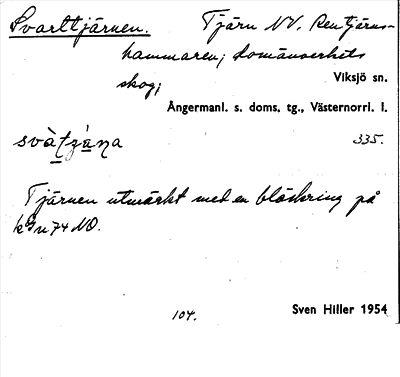 Svarttjärnen. Tjärn NV. Rentjärns-
hammaren; domänverkets
skog;
Viksjö sn.
Ångermanl. s. doms. tg., Västernorrl. l.
svàt̠z̀a̠n̠a 335.
Tjärnen utmärkt med en blåskring på
NO.
104.
Sven Hiller 1954